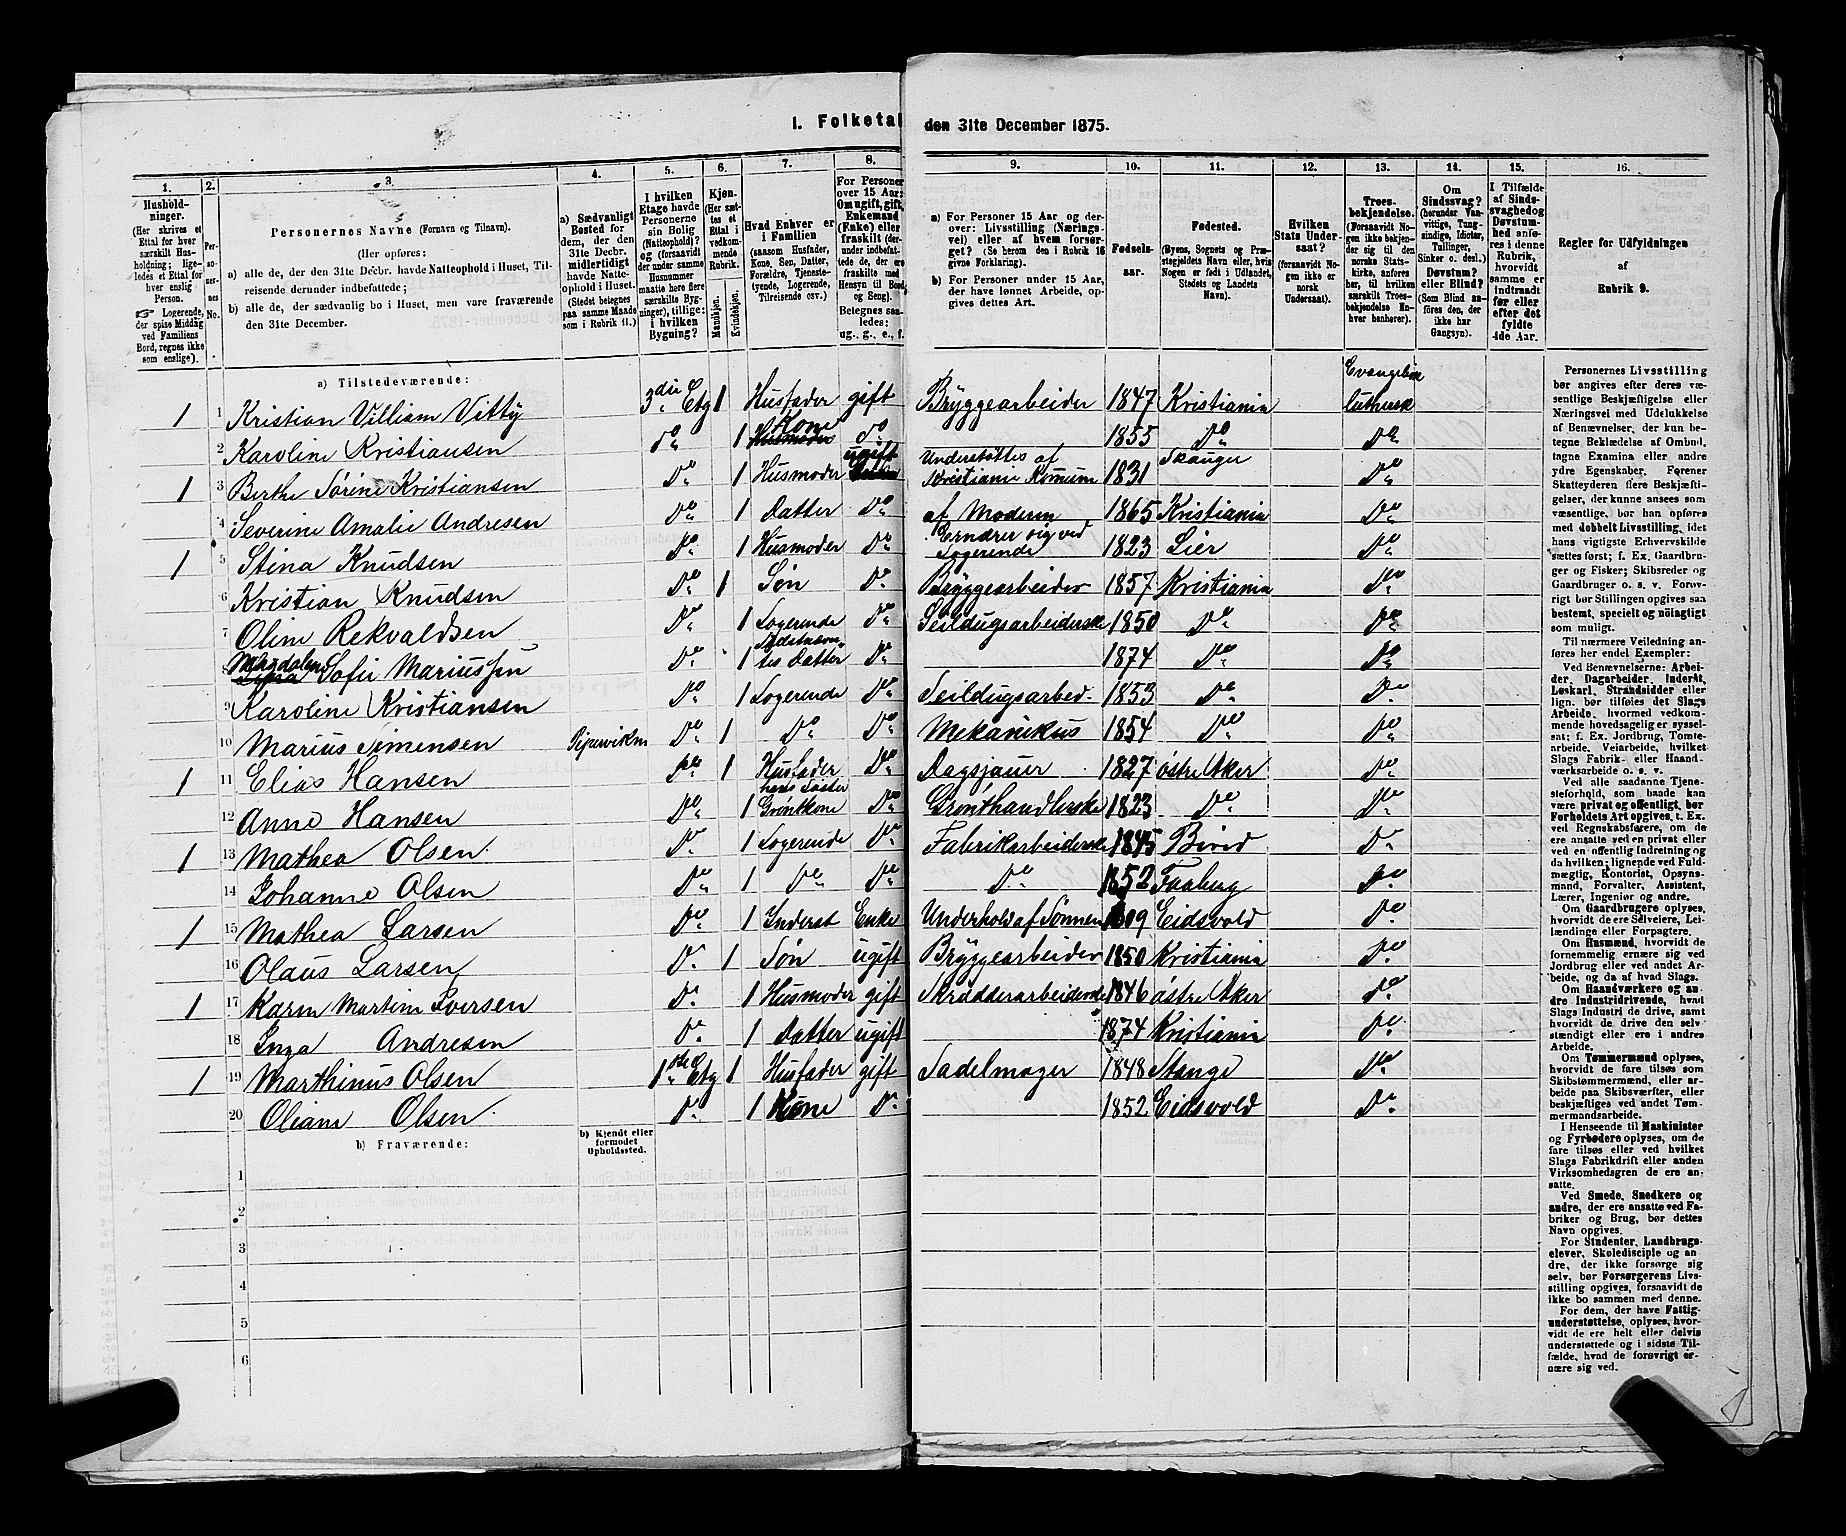 I. Folketal den 31te December 1875.
1. 2. 3. 4. 5. 6. 7. 8. 9. 10. 11. 12. 13. 14. 15. 16.
Husholdninger. (Her skrives et Ettal for hver særskilt Husholdning; ligeledes et Ettal for hver enslig Person. Logerende, der spise Middag ved Familiens Bord, regnes ikke som enslige).
Personernes No.
Personernes Navne (Fornavn og Tilnavn).
(Her opføres:
a) alle de, der den 31te Decbr. havde Natteophold i Huset, Tilreisende derunder indbefattede;
b) alle de, der sædvanlig bo i Huset, men vare fraværende den 31te December.
a) Sædvanligt Bosted for dem, der den 31te Decbr. midlertidigt havde Natteophold i Huset. (Stedet betegnes paa samme Maade som i Rubrik 11.)
I hvilken Etage havde Personerne sin Bolig (Natteophold)? og (forsaavidt der under samme Husnummer maatte høre flere særskilte Bygninger), tillige: i hvilken Bygning?
Kjøn. (Her sættes et Ettal i vedkommende Rubrik.
Mandkjøn. Kvindekjøn.
Hvad Enhver er i Familien (saasom Husfader, Kone, Søn, Datter, Forældre, Tjenestetyende, Logerende, Tilreisende osv.)
For Personer over 15 Aar: Om ugift, gift, Enkemand (Enke) eller fraskilt (derunder indbefattede de, der ere fraskilte med Hensyn til Bord og Seng). Betegnes saaledes: ug., g., e., f.
a) For Personer 15 Aar og derover: Livsstilling (Næringsvei) eller af hvem forsørget? (Se herom den i Rubrik 16 givne Forklaring).
b) For Personer under 15 Aar, der have lønnet Arbeide, opgives dettes Art.
Fødselsaar.
Fødested. (Byens, Sognets og Præstegjeldets Navn eller, hvis Nogen er født i Udlandet, Stedets og Landets Navn).
Hvilken Stats Undersaat? (forsaavidt Nogen ikke er norsk Undersaat).
Troesbekjendelse. (Forsaavidt Nogen ikke bekjender sig til den norske Statskirke, anføres her, til hvilken særskilt Troesbekjendelse Enhver henhører).
Om Sindssvag? (herunder Vanvittige, Tungsindige, Idioter, Tullinger, Sinker o. desl.) Døvstum? eller Blind? (Som Blind anføres den, der ikke har Gangsyn).
I Tilfælde af Sindssvaghed og Døvstumhed anføres i denne Rubrik, hvorvidt samme er indtraadt før eller efter det fyldte 4de Aar.
Regler for Udfyldningen af Rubrik 9.
a) Tilstedeværende:
1 1 Kristian Villiam Vitty 3die Etg 1 Husfader gift Bryggearbeider 1847 Kristiania Evangelisk luthersk
2 Karoline Kristiansen do 1 Kone do 1855 Do Do
1 3 Berthe Sørine Kristiansen Do 1 Husmoder ugift Understøttes af Kristiania Komum 1831 Skauger Do
4 Severine Amalie Andresen Do 1 Datter Do af Moderen 1865 Kristiania Do
1 5 Stina Knudsen Do 1 Husmoder Do Ernærer sig ved Logerende 1823 Lier Do
6 Kristian Knudsen Do 1 Søn Do Bryggearbeider 1857 Kristiania Do
7 Oline Rekvaldsen Do 1 Logerende Do Seildugsarbeiderske 1850 Do Do
8 Magdalen Sofie Mariussen Do 1 Sidstnævntes Datter Do 1874 Do Do
9 Karoline Kristiansen Do 1 Logerende Do Seildugsarbed. 1853 Do Do
10 Marius Simensen Pipervikn Do 1 Do Do Mekanikus 1854 Do Do
1 11 Elias Hansen Do 1 Husfader Do Dagsjauer 1827 østre Aker Do
12 Anne Hansen Do 1 hans Søster Grøntkone Do Grønthandlerske 1823 Do Do
1 13 Mathea Olsen Do 1 Logerende Do Fabrikarbeiderske 1845 Birid Do
14 Johanne Olsen Do 1 Do Do Do 1852 Faaberg Do
1 15 Mathea Larsen Do 1 Inderst Enke Underhold af Sønnen 1809 Eidsvold Do
16 Olaus Larsen Do 1 Søn ugift Bryggearbeider 1850 Kristiania Do
1 17 Karen Martine Iversen Do 1 Husmoder gift Skrædderarbeiderske 1846 østre Aker Do
18 Inga Andresen Do 1 Datter ugift 1874 Kristiania Do
1 19 Marthinus Olsen 1ste Etg 1 Husfader gift Sadelmager 1848 Stange Do
20 Oliane Olsen Do 1 Kone Do 1852 Eidsvold Do
b) Fraværende:
b) Kjendt eller formodet Opholdssted.
1
2
3
4
5
6
Personernes Livsstilling
bør angives efter deres væ-
sentlige Beskjæftigelse eller
Næringsvei med Udelukkelse
af Benævnelser, der kun be-
tegne Beklædelse af Ombud,
tagne Examina eller andre
ydre Egenskaber. Forener
Skatteyderen flere Beskjæfti-
gelser, der kunne ansees som
væsentlige, bør han opføres
med dobbelt Livsstilling, idet
hans vigtigste Erhvervskilde
sættes først; f. Ex. Gaardbru-
ger og Fisker; Skibsreder og
Gaardbruger o. s. v. Forøv-
rigt bør Stillingen opgives saa
bestemt, specielt og nøiagtigt
som muligt.
Til nærmere Veiledning an-
føres her endel Exempler:
Ved Benævnelserne: Arbei-
der, Dagarbeider, Inderst,
Løskarl, Strandsidder eller
lign. bør tilføies det Slags
Arbeide, hvormed vedkom-
mende hovedsagelig er syssel-
sat; f. Ex. Jordbrug, Tomte-
arbeide, Veiarbeide, hvilket
Slags Fabrik- eller Haand-
værksarbeide o. s. v.
Ved alle saadanne Tjene-
steforhold, som baade kan
være privat og offentligt, bør
Forholdets Art opgives, t. Ex.
ved Regnskabsførere, om de
ere ansatte ved en privat eller
ved en offentlig Indretning og
da hvilken; lignende ved Fuld-
mægtig, Kontorist, Opsyns-
mand, Forvalter, Assistent,
Lærer, Ingeniør og andre.
Om Gaardbrugere oplyses,
hvorvidt de ere Selveiere, Lei-
lændinge eller Forpagtere.
Om Husmænd, hvorvidt de
fornemmelig ernære sig ved
Jordbrug eller ved andet Ar-
beide, og da af hvad Slags.
Om Haandværkere og an-
dre Industridrivende, hvad
Slags Industri de drive, samt
hvorvidt de drive den selv-
stændigt eller ere i andres
Arbeide.
Om Tømmermænd oplyses,
hvorvidt de fare tilsøs som
Skibstømmermænd, eller ar-
beide paa Skibsværfter, eller
beskjæftiges ved andet Tøm-
mermandsarbeide.
I Henseende til Maskinister
og Fyrbødere oplyses, om de
fare tilsøs eller ved hvilket
Slags Fabrikdrift eller anden
Virksomhedsgren de ere an-
satte.
Ved Smede, Snedkere og
andre, der ere ansatte ved Fa-
briker og Brug, bør dettes
Navn opgives.
For Studenter, Landbrugs-
elever, Skoledisciple og an-
dre, der ikke forsørge sig
selv, bør Forsørgerens Livs-
stilling opgives, forsaavidt de
ikke bo sammen med denne.
For dem, der have Fattig-
understøttelse, oplyses, hvor-
vidt de ere helt eller delvis
understøttede og i sidste Til-
fælde, hvad de forøvrigt er-
nære sig ved.